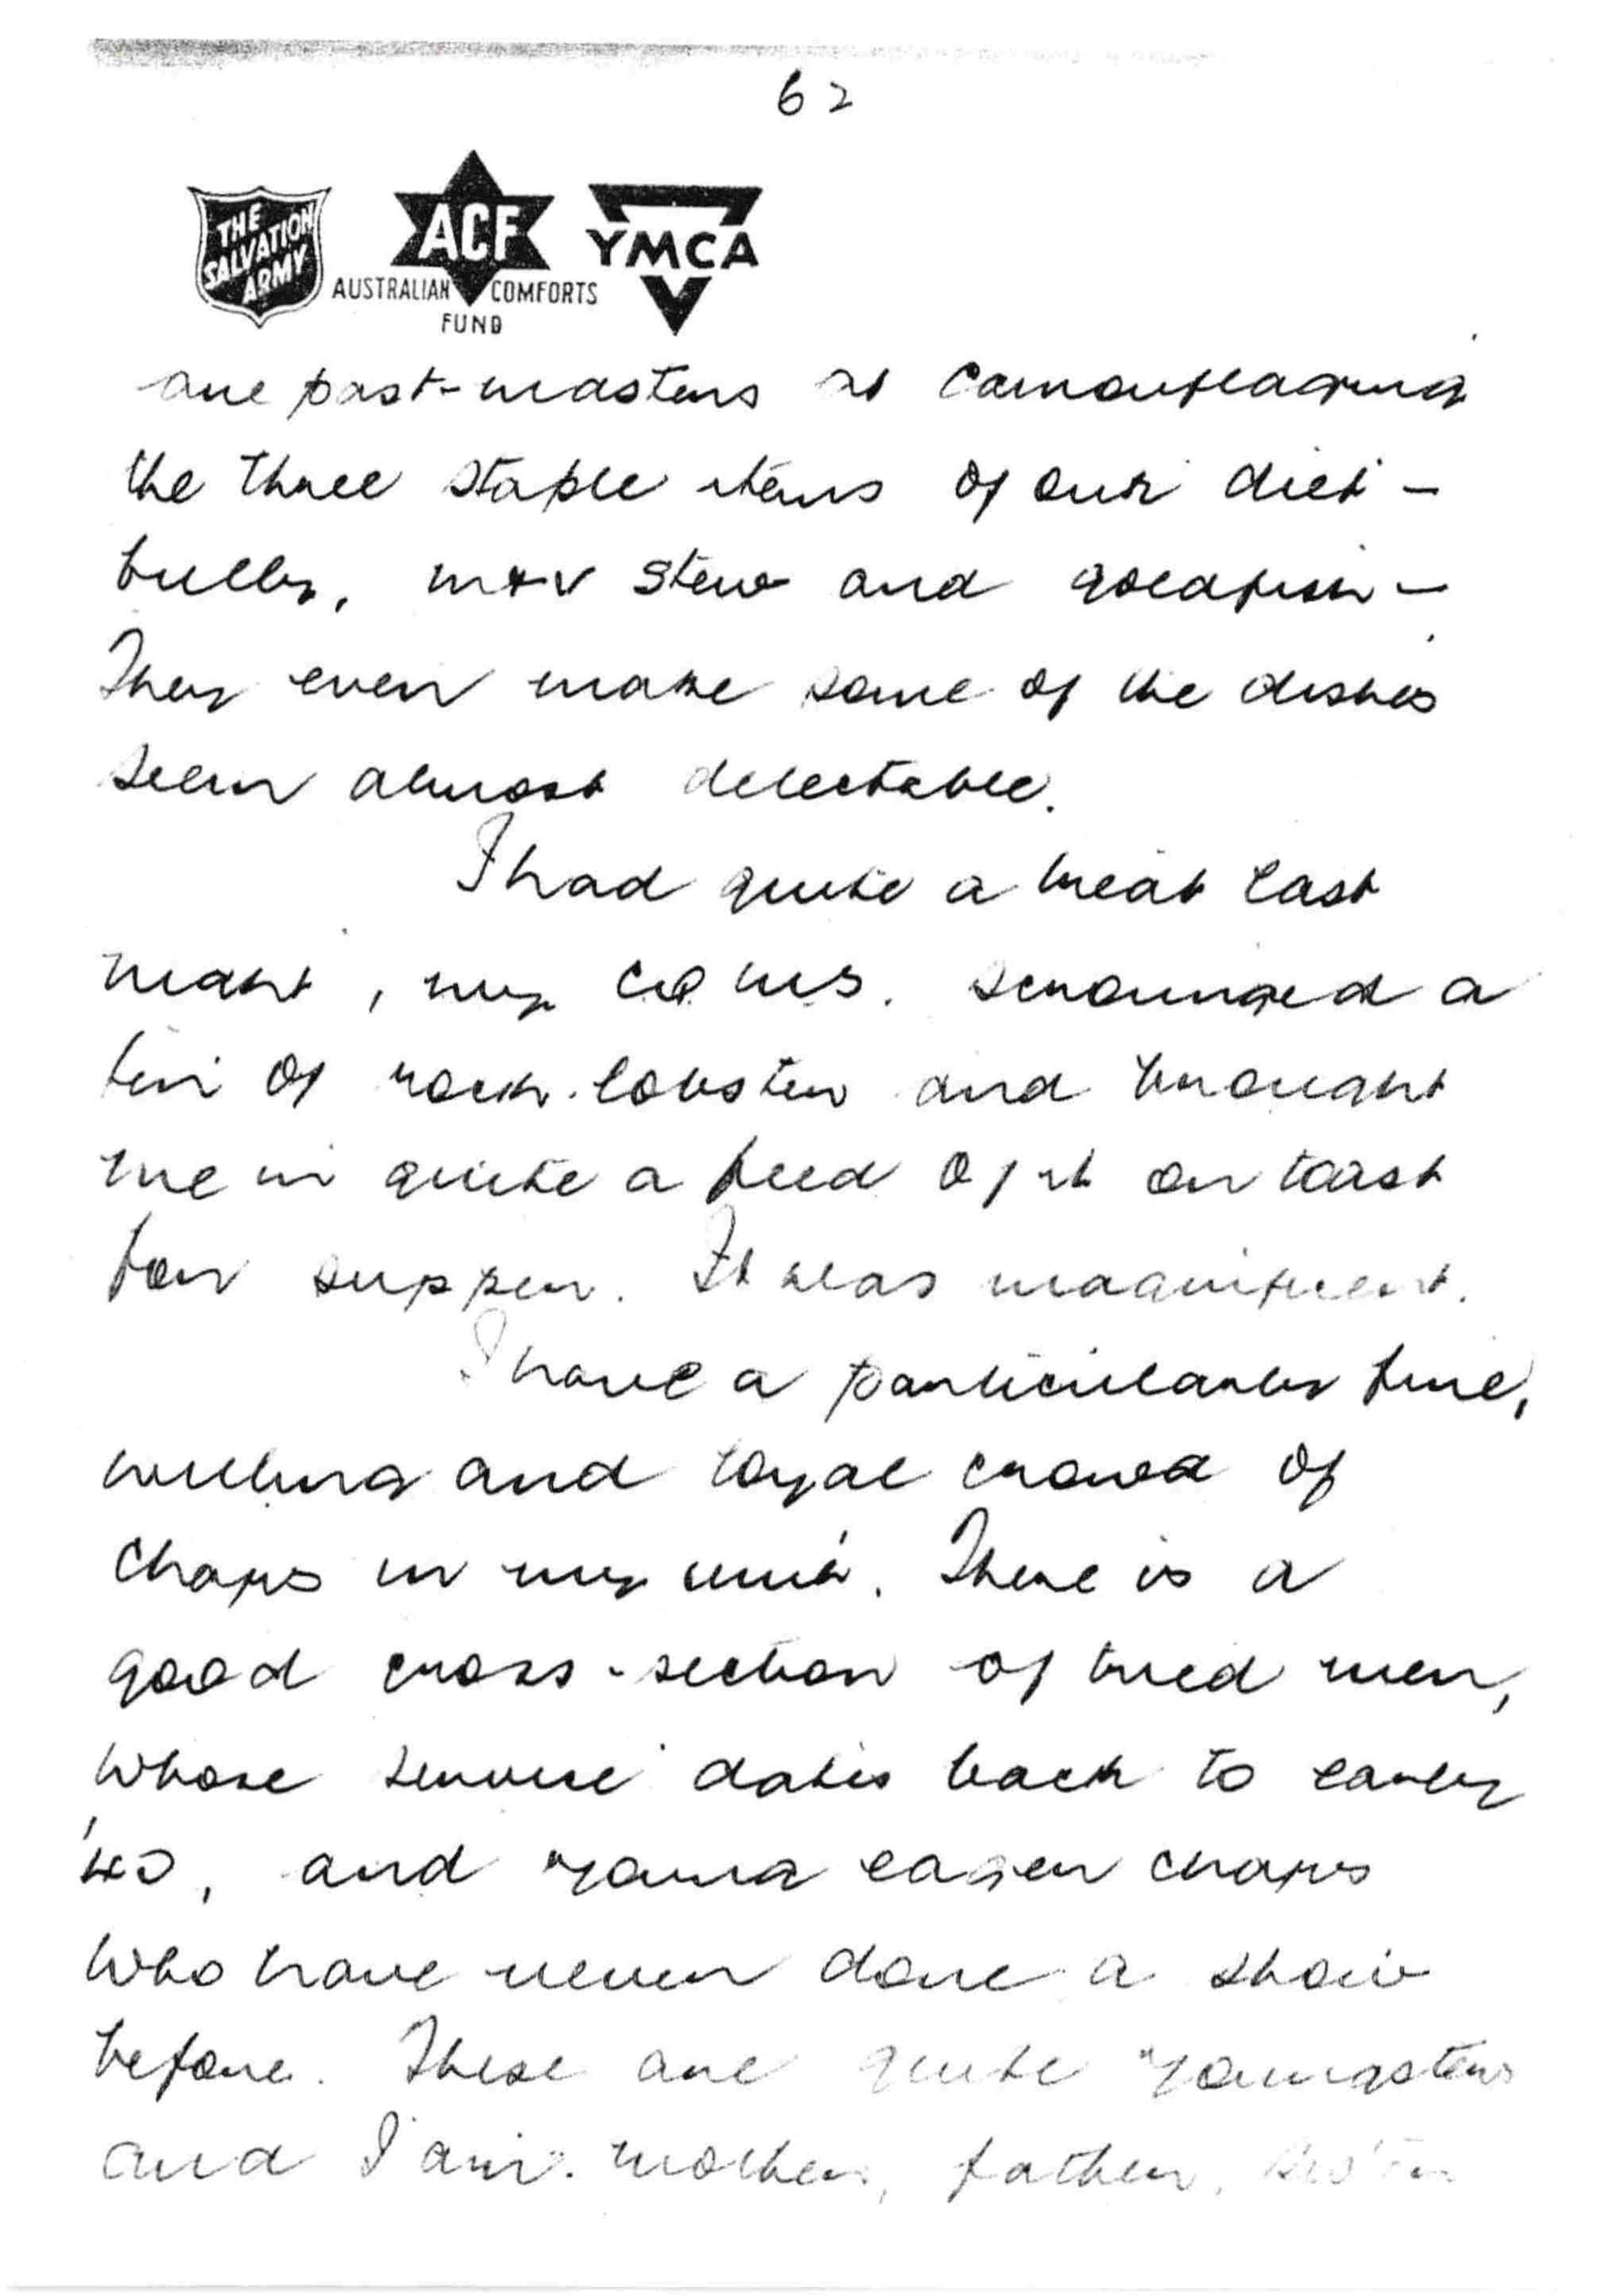 62
THE SALVATION ARMY
ACF
AUSTRALIAN COMFORTS
FUND
YMCA
are past-masters at camouflaging
the three staple items of our diet –
bully, m+v stew and goldfish –
They even make some of the dishes
seem almost delectable.
I had quite a treat last
night, my cooks. scrounged a
tin of rock-lobster and brought
me in quite a feed of it on toast
for supper. It was magnificent.
I have a particularly fine,
willing and loyal crowd of
chaps in my unit. There is a
good cross-section of tried men,
whose service dates back to early
'40, and young eager chaps
who have never done a show
before. These are quite youngsters
and I am mother, father,